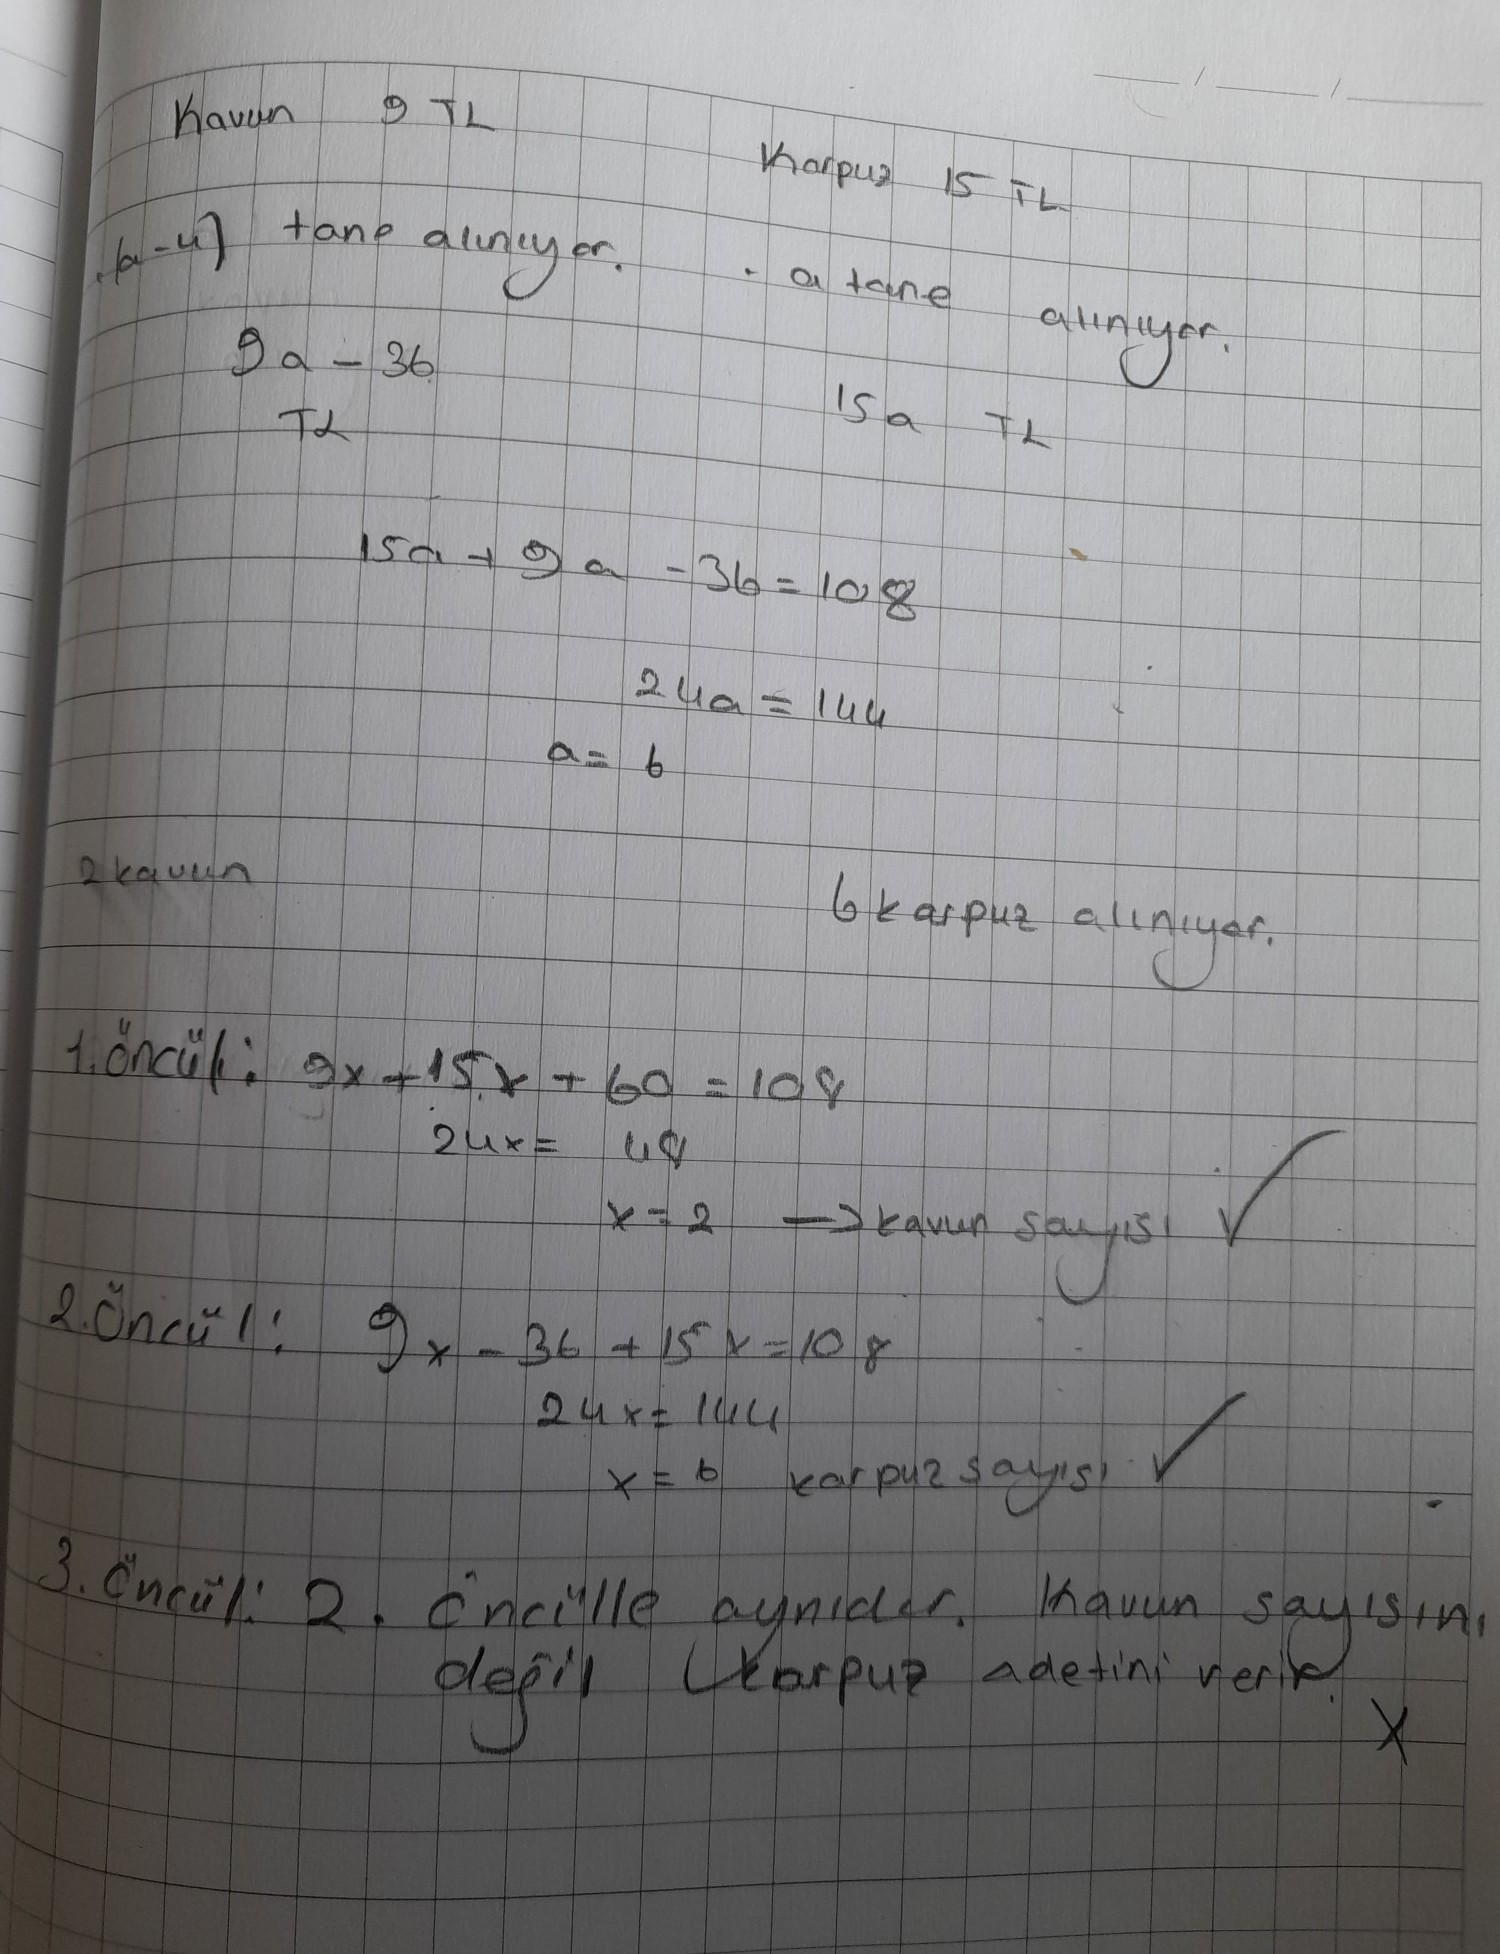 Kavun 9 TL
Karpuz 15 TL
(a-4) tane alınıyor.
. a tane alınıyor.
9a - 36
TL
15a TL
15a + 9a - 36 = 108
24a = 144
a = 6
2 kavun
6 karpuz alınıyor.
1. Öncül: 9x + 15x + 60 = 108
24x = 48
x = 2 → kavun sayısı ✓
2. Öncül: 9x - 36 + 15x = 108
24x = 144
x = 6 karpuz sayısı ✓
3. Öncül: 2. öncülle aynıdır. Kavun sayısını
değil karpuz adetini verir. X